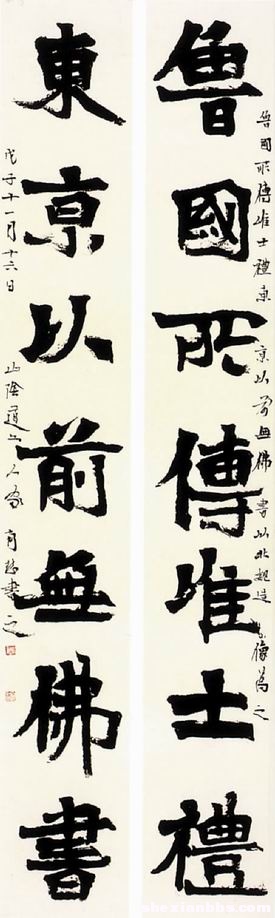 魯國所傳唯士禮
東京以前無佛書
魯國所傳唯士禮東京以前無佛書以北魏造像為之
戊子十一月十六日
山陰道上人家
書之